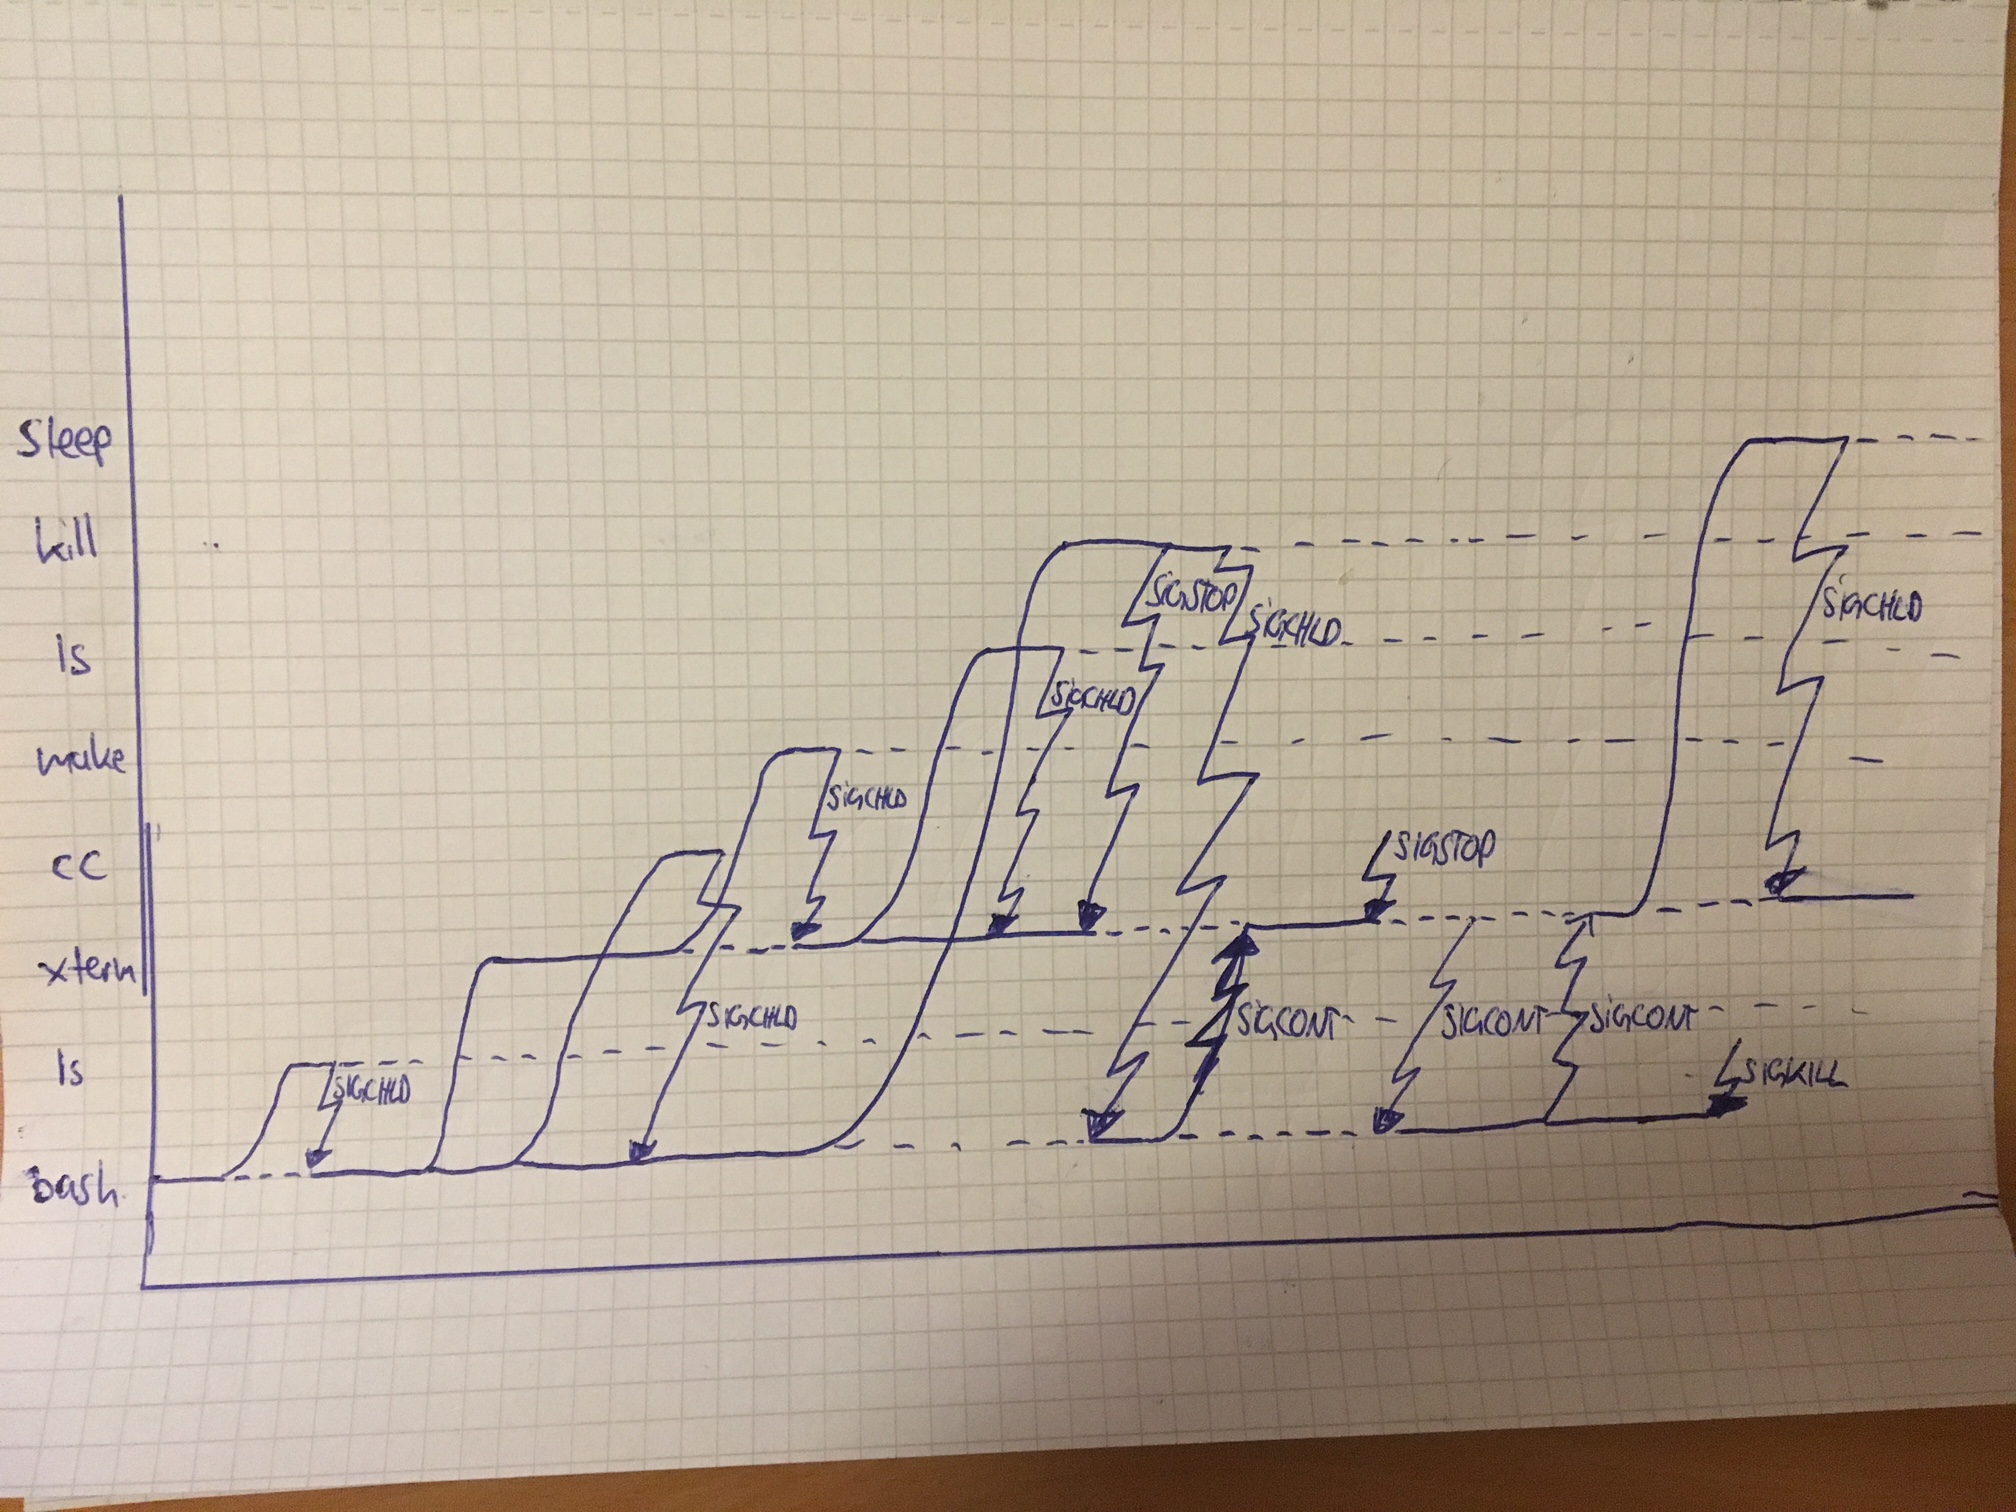 Sleep
kill
ls
make
cc
xterm
ls
bash
SIGCHLD
SIGCHLD
SIGCHLD
SIGCHLD
SIGSTOP
SIGCHLD
SIGCONT
SIGSTOP
SIGCONT
SIGCONT
SIGKILL
SIGCHLD